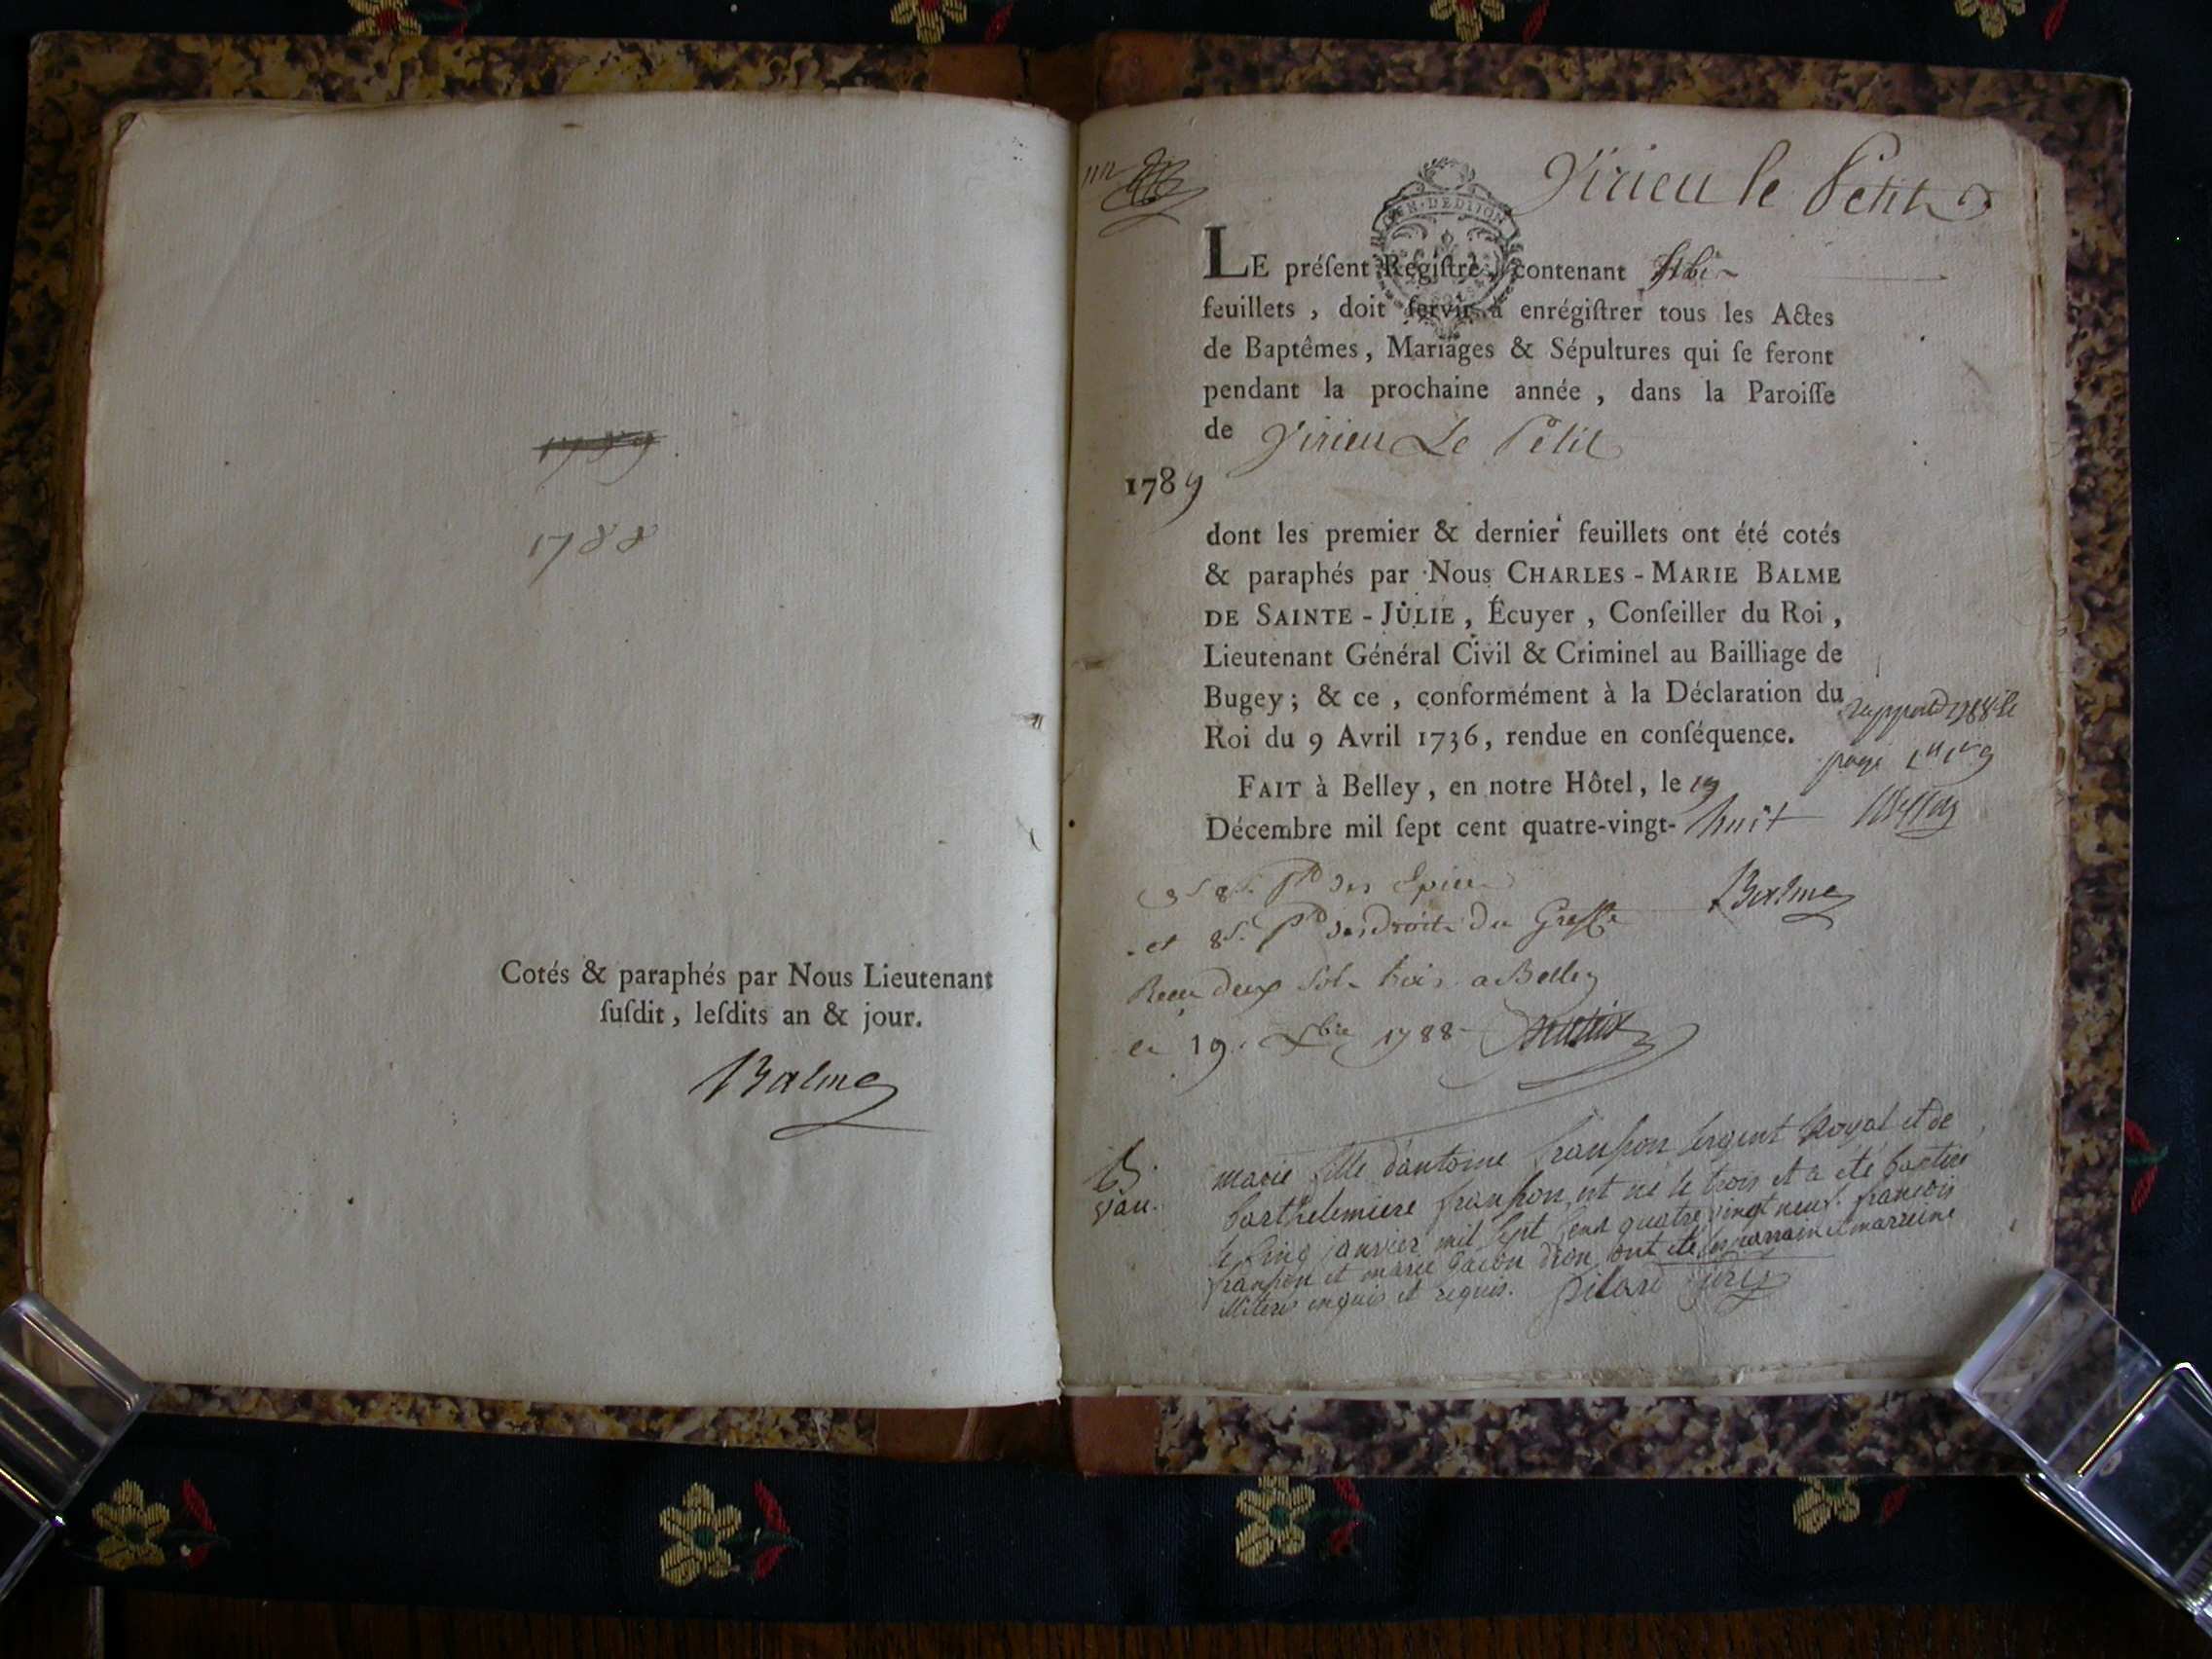 1789
1788
Cotés & paraphés par Nous Lieutenant
ſuſdit, leſdits an & jour.
Balme
Virieu le Petit
GEN·DE DIJON
LE préſent Regiſtre, contenant
feuillets, doit ſervir à enrégiſtrer tous les Actes
de Baptêmes, Mariages & Sépultures qui ſe feront
pendant la prochaine année, dans la Paroiſſe
de Virieu Le Petit
1789
dont les premier & dernier feuillets ont été cotés
& paraphés par Nous CHARLES-MARIE BALME
DE SAINTE-JULIE, Écuyer, Conſeiller du Roi,
Lieutenant Général Civil & Criminel au Bailliage de
Bugey; & ce, conformément à la Déclaration du
Roi du 9 Avril 1736, rendue en conſéquence.
page
FAIT à Belley, en notre Hôtel, le 19
Décembre mil ſept cent quatre-vingt-huit
Balme
et 8s. des droits du Greffe
Receu deux sols trois a Belley
le 19. Xbre 1788
B.
Jan.
marie fille d'antoine franson sergent Royal et de
barthelemiere franson est né le trois et a été batisé
le cinq janvier mil sept cent quatre vingt neuf. francois
franson et marie ont été les parrain et marreine
illiteré enquis et requis.